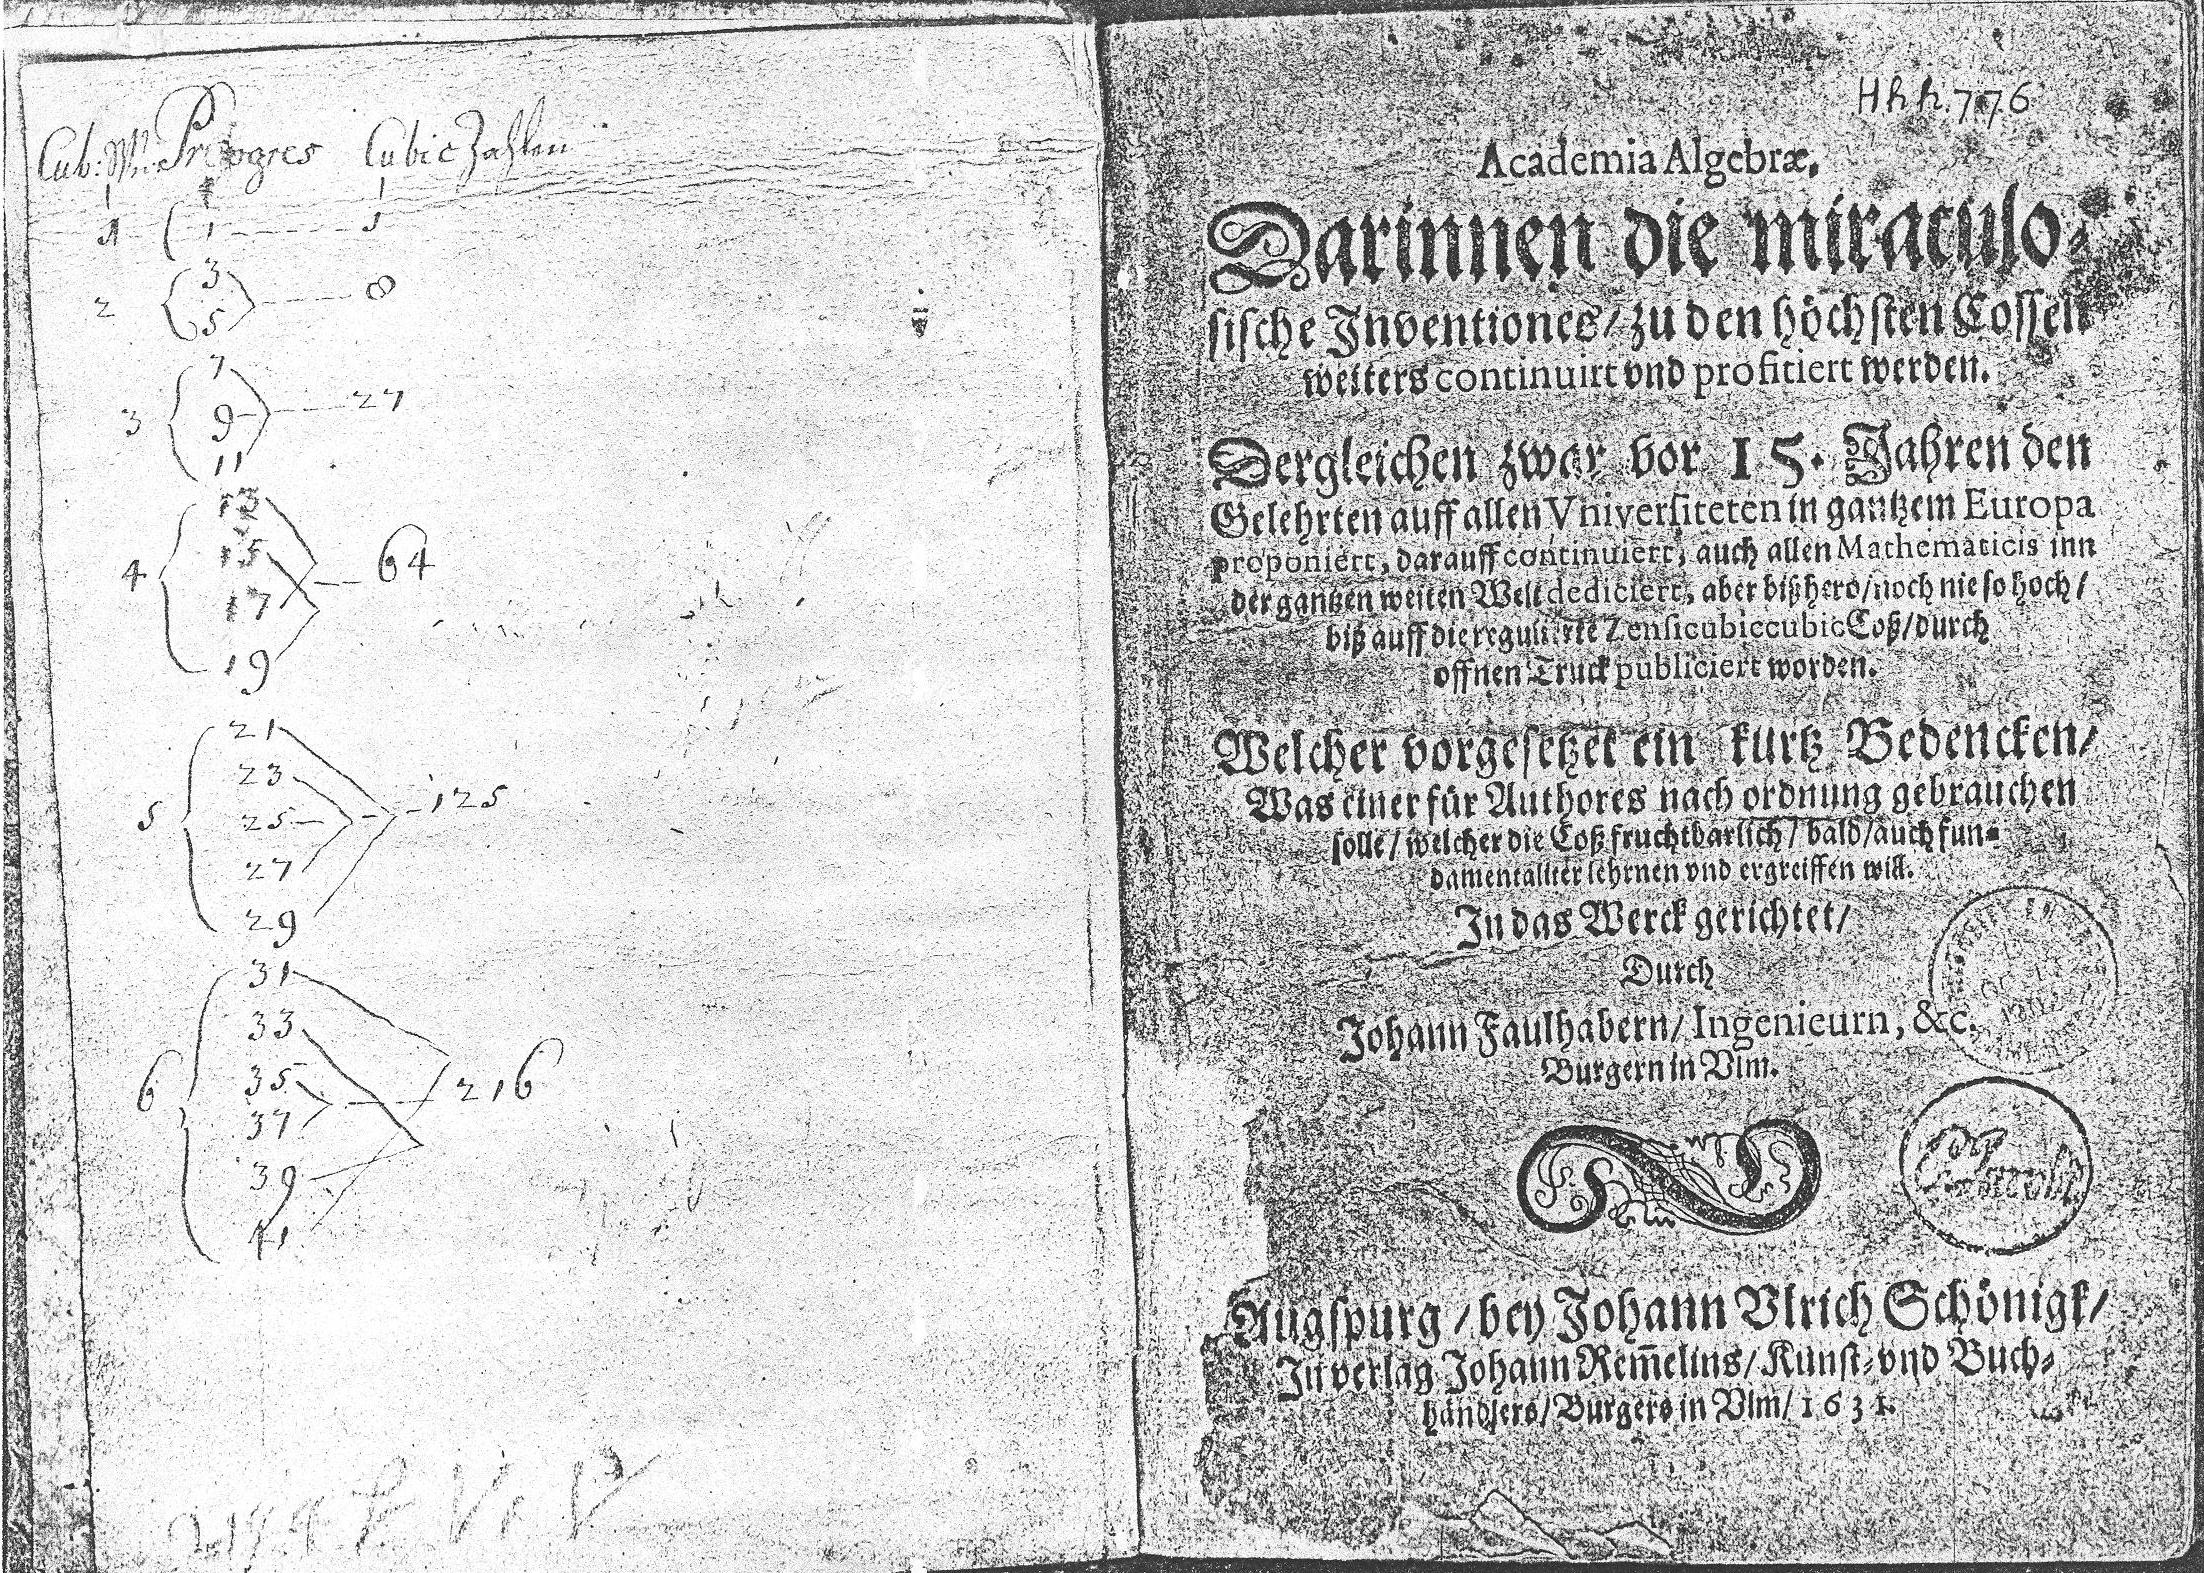 Cub: W. Progres Cubic Zahlen
1 1 1
2 3 8
5
7
3 9 27
11
13
4 15 64
17
19
21
23
5 25 125
27
29
31
33
6 35 216
37
39
41
Hhh. 776
Academia Algebræ,
Darinnen die miraculo⸗
sische Inventiones/ zu den höchsten Cossen
weiters continuirt vnd profitiert werden.
Dergleichen zwar vor 15. Jahren den
Gelehrten auff allen Vniversiteten in gantzem Europa
proponiert, darauff continuiert, auch allen Mathematicis inn
der gantzen weiten Welt dediciert, aber bißhero/ noch nie so hoch/
biß auff die regulierte Zensicubiccubic Coß/ durch
offnen Truck publiciert worden.
Welcher vorgesetzet ein kurtz Bedencken/
Was einer für Authores nach ordnung gebrauchen
solle/ welcher die Coß fruchtbarlich/ bald/ auch fun⸗
damentaliter lehrnen vnd ergreiffen will.
In das Werck gerichtet/
Durch
Johann Faulhabern/ Ingenieurn, &c.
Burgern in Vlm.
Augspurg/ bey Johann Vlrich Schönigk/
In verlag Johann Rem̃elins/ Kunst⸗ vnd Buch⸗
händlers/ Burgers in Vlm/ 1631.